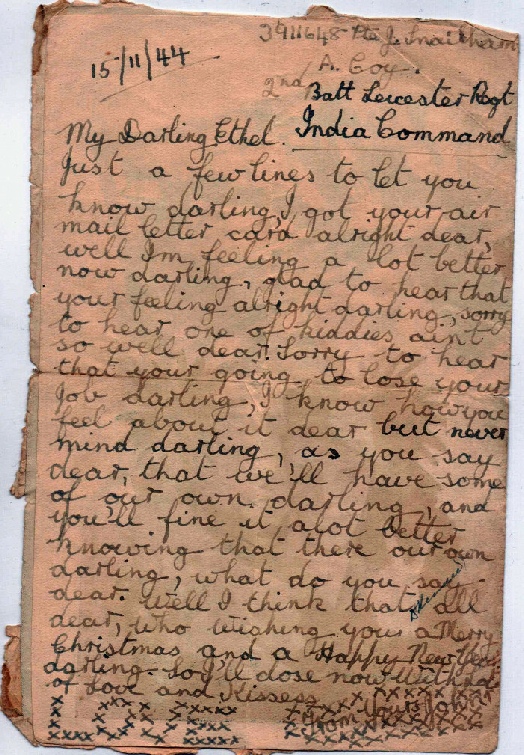 3911648 Pte J. Snaitham
A. Coy.
15/11/44
2nd Batt Leicester Regt
India Command
My Darling Ethel.
Just a few lines to let you
know darling, I got your air
mail letter card alright dear,
well Im feeling a lot better
now darling, glad to hear that
your feeling alright darling, sorry
to hear one of kiddies ain't
so well dear. Sorry to hear
that your going to lose your
job darling, I know how you
feel about it dear but never
mind darling, as you say
dear, that we'll have some
of our own darling, and
you'll fine it alot better
knowing that there our own
darling, what do you say
dear. Well I think that all
dear, who wishing your a Merry
Christmas and a Happy New Year
darling. So I'll close now with lot
of Love and Kisses
From Yours John